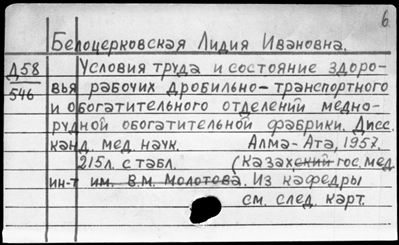 б
Белоцерковская Лидия Ивановна.
Д58 Условия труда и состояние здоро-
546 вья рабочих дробильно-транспортного
и обогатительного отделений медно-
рудной обогатительной фабрики. Дисс.
канд. мед. наук. Алма-Ата, 1957.
215л. с табл. (Казахский гос. мед.
ин-т им. В.М. Молотова. Из кафедры
см. след. карт.